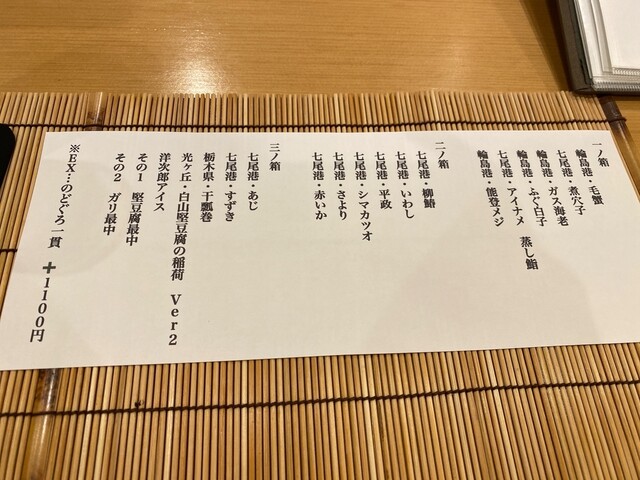 一ノ箱
輪島港・毛蟹
七尾港・煮穴子
輪島港・ガス海老
輪島港・ふぐ白子
七尾港・アイナメ　蒸し鮨
輪島港・能登メジ
二ノ箱
七尾港・柳鰆
七尾港・いわし
七尾港・平政
七尾港・シマカツオ
七尾港・さより
七尾港・赤いか
三ノ箱
七尾港・あじ
七尾港・すずき
栃木県・干瓢巻
光ヶ丘・白山堅豆腐の稲荷　Ver2
洋次郎アイス
その1　堅豆腐最中
その2　ガリ最中
※EX…のどぐろ一貫　+1100円